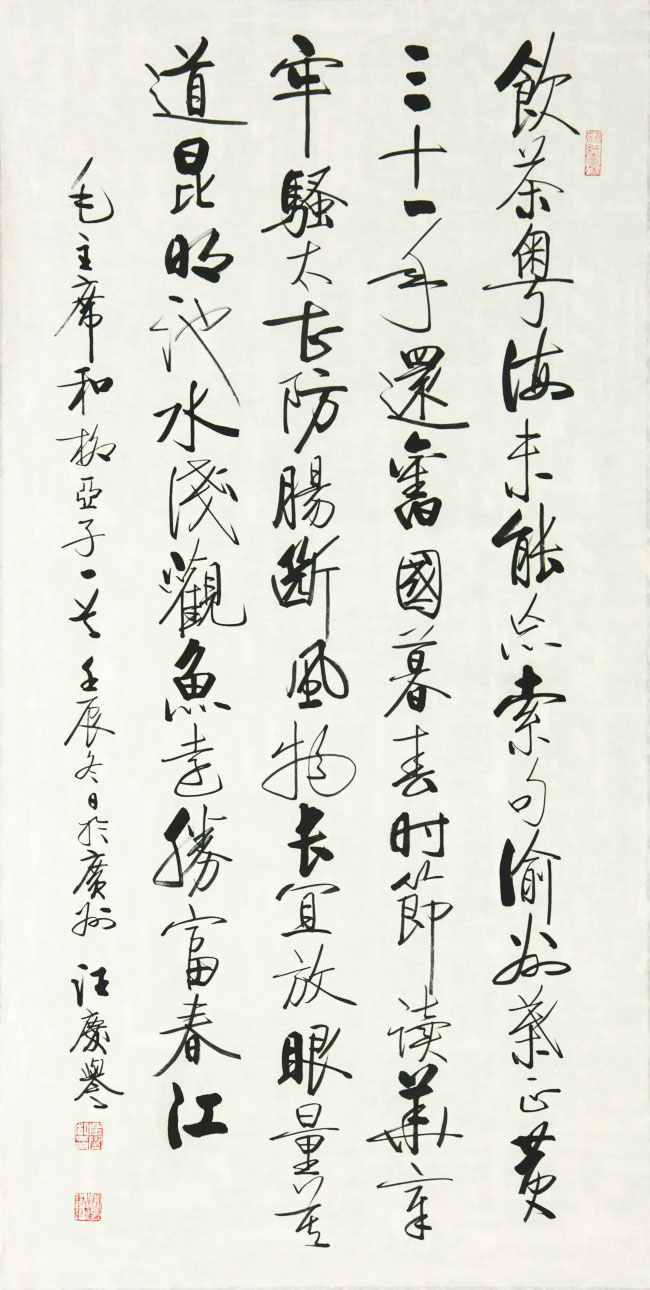 飲茶粵海未能忘索句渝州葉正黃
三十一年還舊國暮春时節读華章
牢騷太甚防腸斷風物长宜放眼量莫
道昆明池水淺觀魚勝富春江
毛主席和柳亞子一首壬辰冬日於廣州汪慶